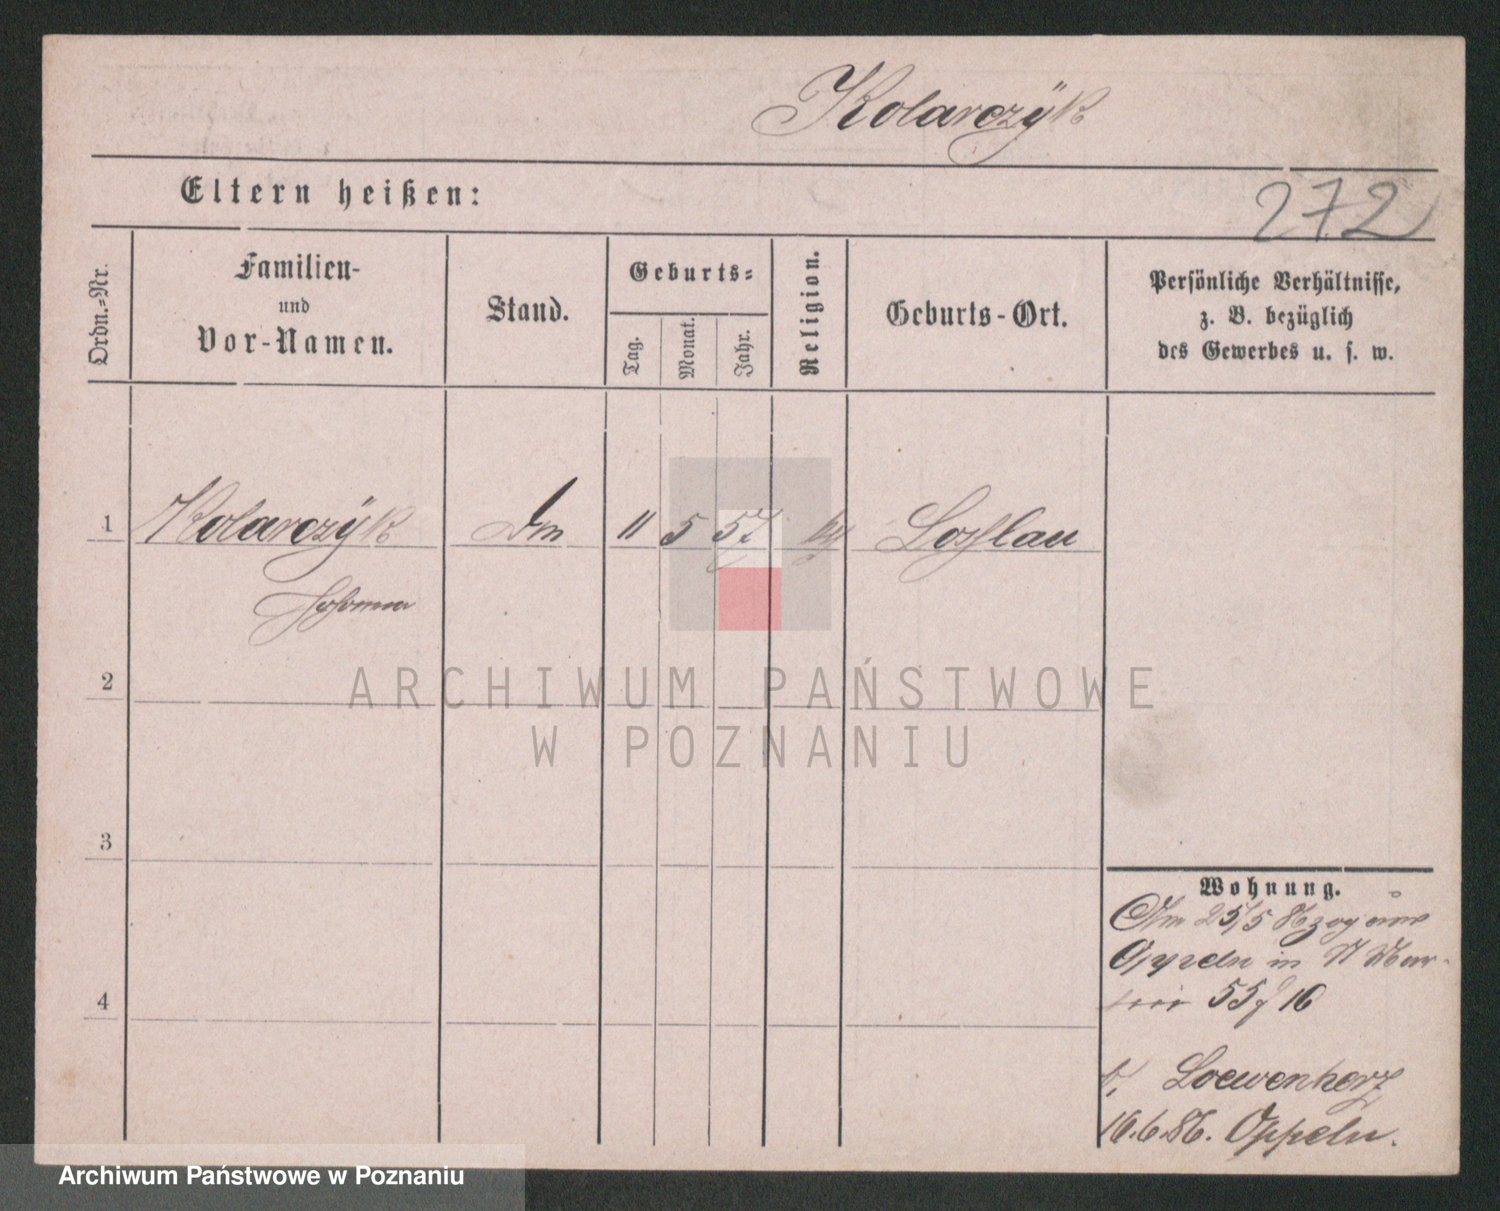 Kolarczÿk
Eltern heißen:
272
Ordn.-Nr.
Familien-
und
Vor-Namen.
Stand.
Geburts-
Tag.
Monat.
Jahr.
Religion.
Geburts-Ort.
Persönliche Verhältnisse,
z. B. bezüglich
des Gewerbes u. s. w.
1 Kolarczÿk 11 5 57 Loslau
Johanna
2
3
4
Wohnung.
Am 25/5 86 zog aus
Oppeln in
55 16
b. Loewenherz
16.6.86. Oppeln.
ARCHIWUM PAŃSTWOWE
W POZNANIU
Archiwum Państwowe w Poznaniu